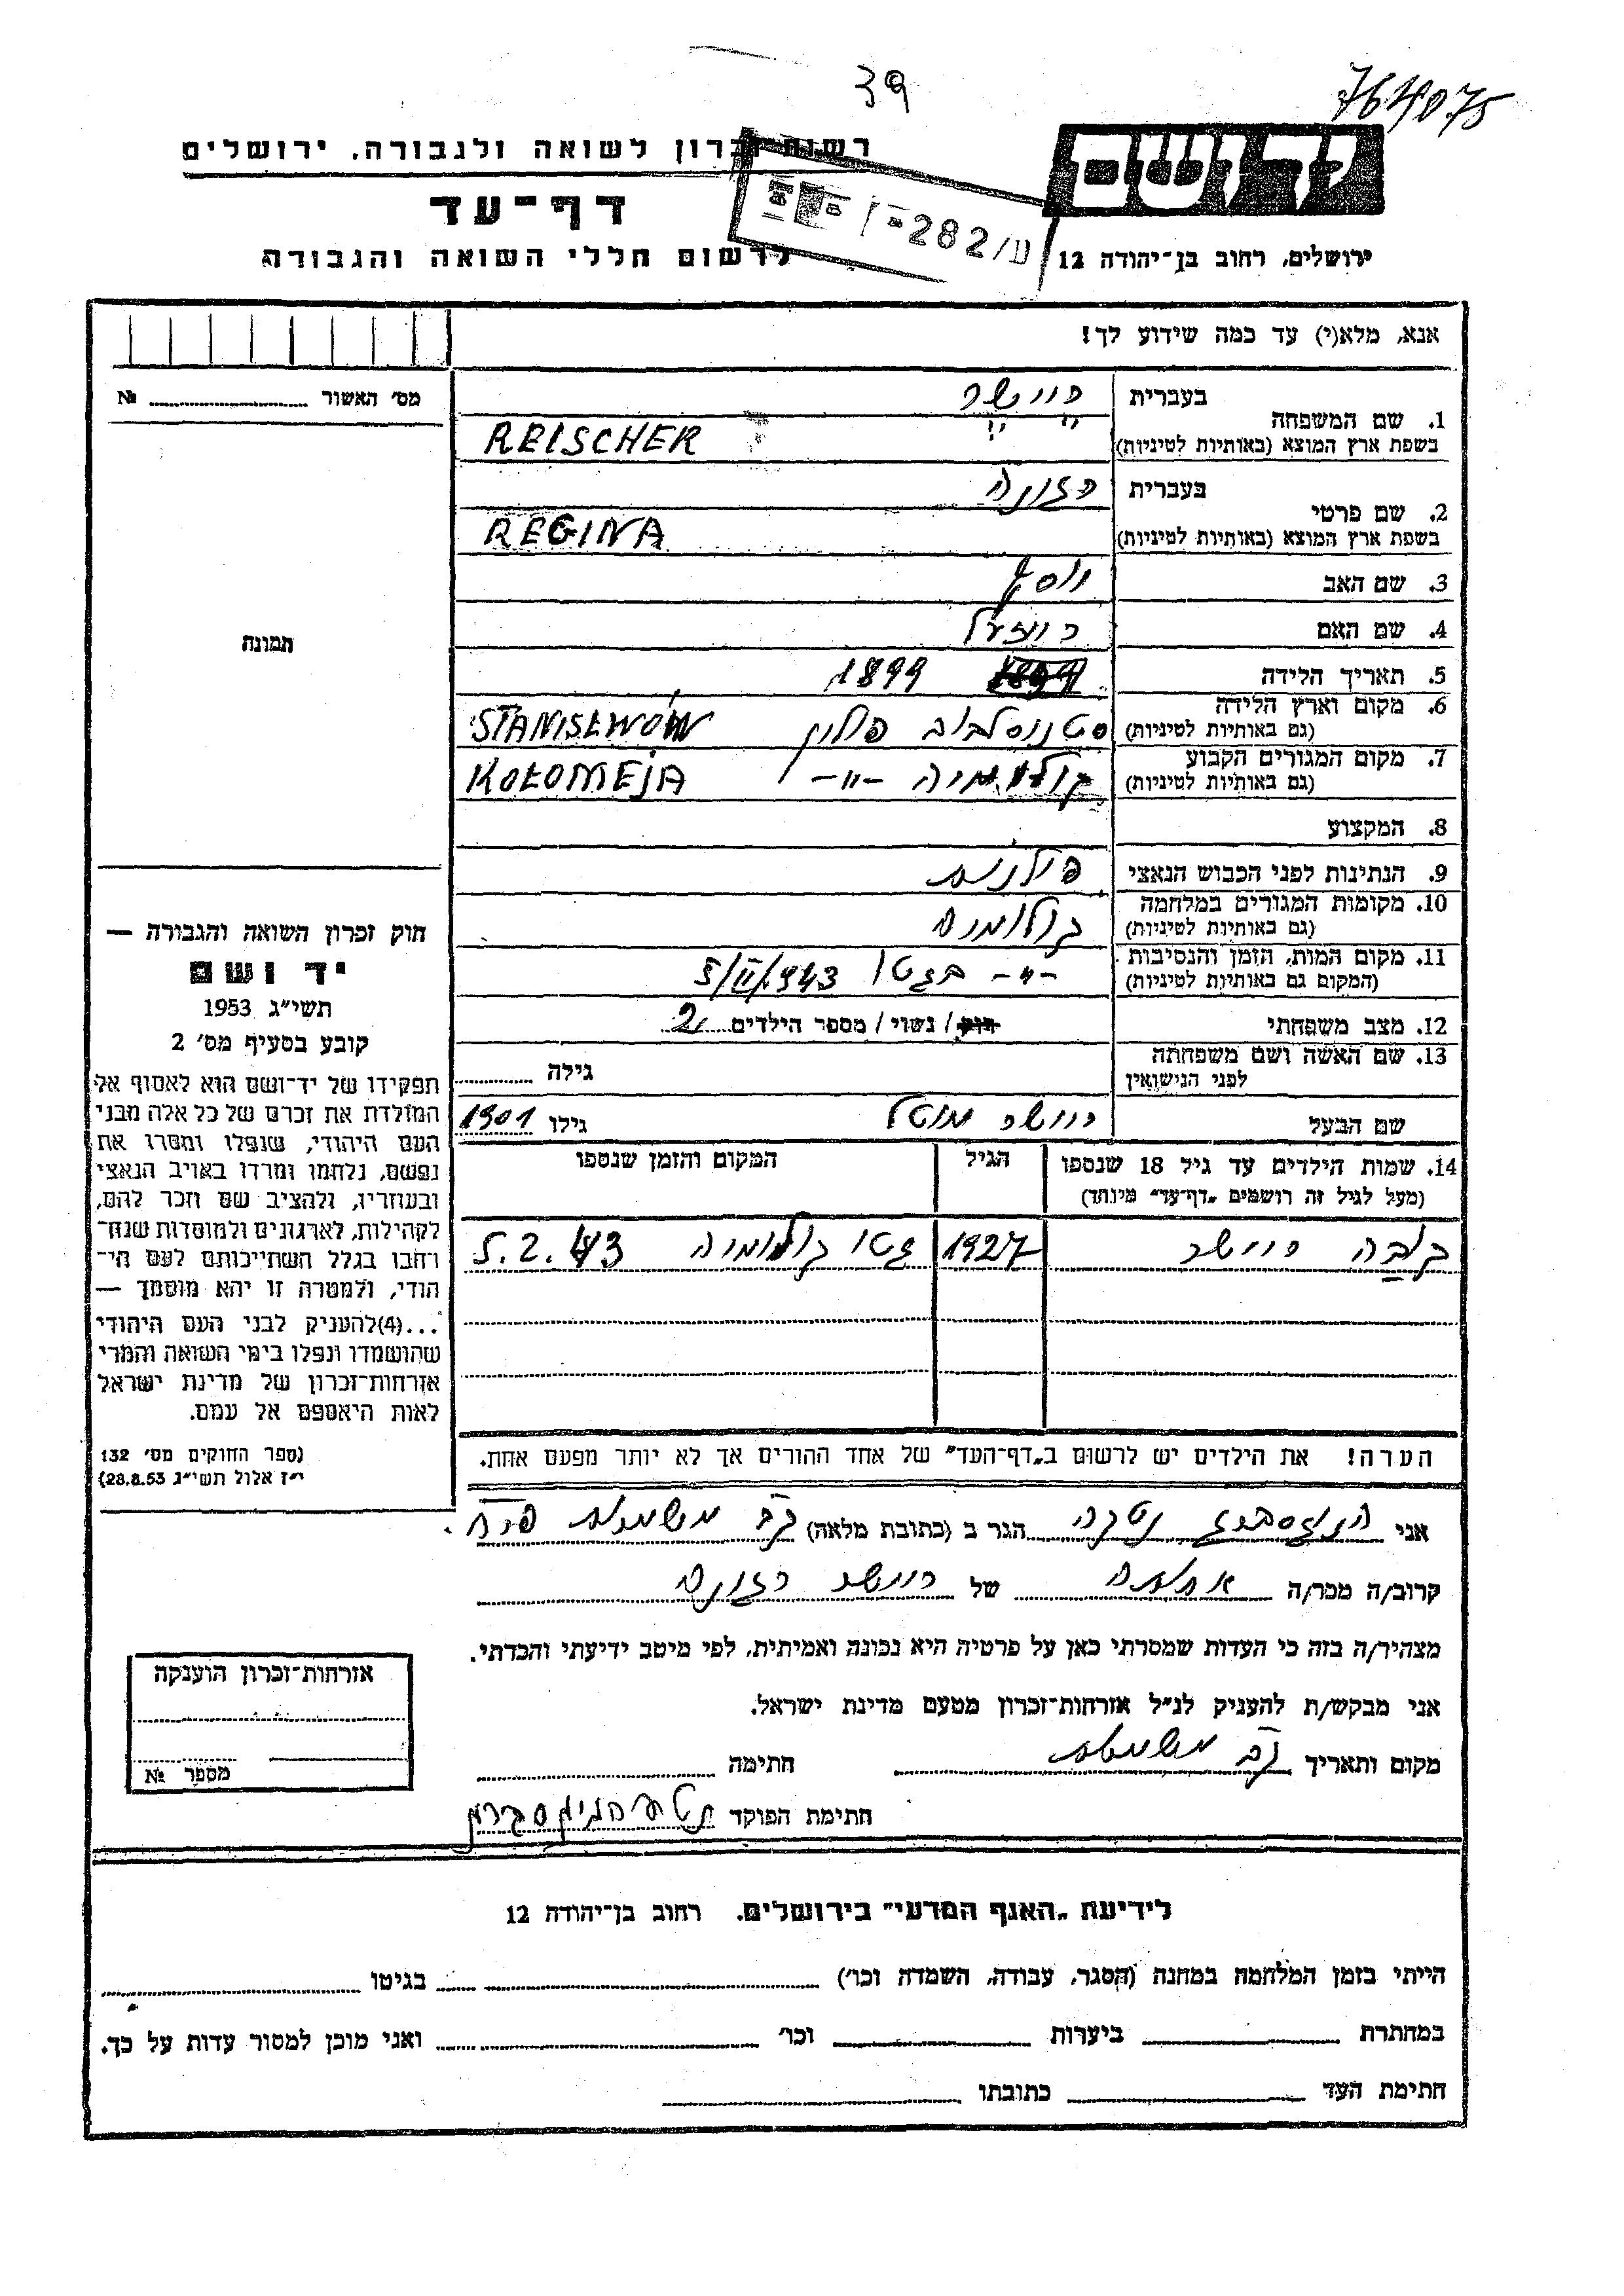 39
764075
רשות זכרון לשואה ולגבורה, ירושלים
דף-עד
לרשום חללי השואה והגבורה
282/ע
ידושם
ירושלים, רחוב בן-יהודה 12
אנא, מלא(י) עד כמה שידוע לך!
מס' האשור № ........
1. שם המשפחה בעברית ריישר
בשפת ארץ המוצא (באותיות לטיניות) REISCHER
2. שם פרטי בעברית רגינה
בשפת ארץ המוצא (באותיות לטיניות) REGINA
3. שם האב יוסף
4. שם האם רויזעל
5. תאריך הלידה 1899
6. מקום וארץ הלידה (גם באותיות לטיניות) סטניסלבוב פולין STANISEWÓW
7. מקום המגורים הקבוע (גם באותיות לטיניות) קולומיה -"- KOŁOMEJA
8. המקצוע
9. הנתינות לפני הכבוש הנאצי פולנית
10. מקומות המגורים במלחמה (גם באותיות לטיניות) קולומיה
11. מקום המות, הזמן והנסיבות (המקום גם באותיות לטיניות) -"- בגטו 5/II/943
12. מצב משפחתי רוק / נשוי / מספר הילדים 2
13. שם האשה ושם משפחתה לפני הנישואין גילה ........
שם הבעל ריישר מוטל גילו 1901
14. שמות הילדים עד גיל 18 שנספו (מעל לגיל זה רושמים „דף-עד” מיוחד) הגיל המקום והזמן שנספו
ריישר 1927 גטו קולומיה 5.2.43
הערה! את הילדים יש לרשום ב„דף-העד” של אחד ההורים אך לא יותר מפעם אחת.
תמונה
חוק זכרון השואה והגבורה —
יד ושם
תשי"ג 1953
קובע בסעיף מס' 2
תפקידו של יד-ושם הוא לאסוף אל
המולדת את זכרם של כל אלה מבני
העם היהודי, שנפלו ומסרו את
נפשם, נלחמו ומרדו באויב הנאצי
ובעוזריו, ולהציב שם וזכר להם,
לקהילות, לארגונים ולמוסדות שנח-
רחבו בגלל השתייכותם לעם הי-
הודי, ולמטרה זו יהא מוסמך —
...(4)להעניק לבני העם היהודי
שהושמדו ונפלו בימי השואה והמרי
אזרחות-זכרון של מדינת ישראל
לאות היאספם אל עמם.
(ספר החוקים מס' 132
י"ז אלול תשי"ג 28.8.53)
אני נטקה הגר ב (כתובת מלאה) קב משמאל
קרוב/ה מכר/ה אחות של ריישר רגינה
מצהיר/ה בזה כי העדות שמסרתי כאן על פרטיה היא נכונה ואמיתית, לפי מיטב ידיעתי והכרתי.
אני מבקש/ת להעניק לנ"ל אזרחות-זכרון מטעם מדינת ישראל.
מקום ותאריך חתימה
חתימת הפוקד
אזרחות-זכרון הוענקה
מספר №
לידיעת „האגף המדעי” בירושלים, רחוב בן-יהודה 12
הייתי בזמן המלחמה במחנה (הסגר, עבודה, השמדה וכו') ........ בגיטו ........
במחתרת ........ ביערות ........ וכו' ........ ואני מוכן למסור עדות על כך.
חתימת העד ........ כתובתו ........